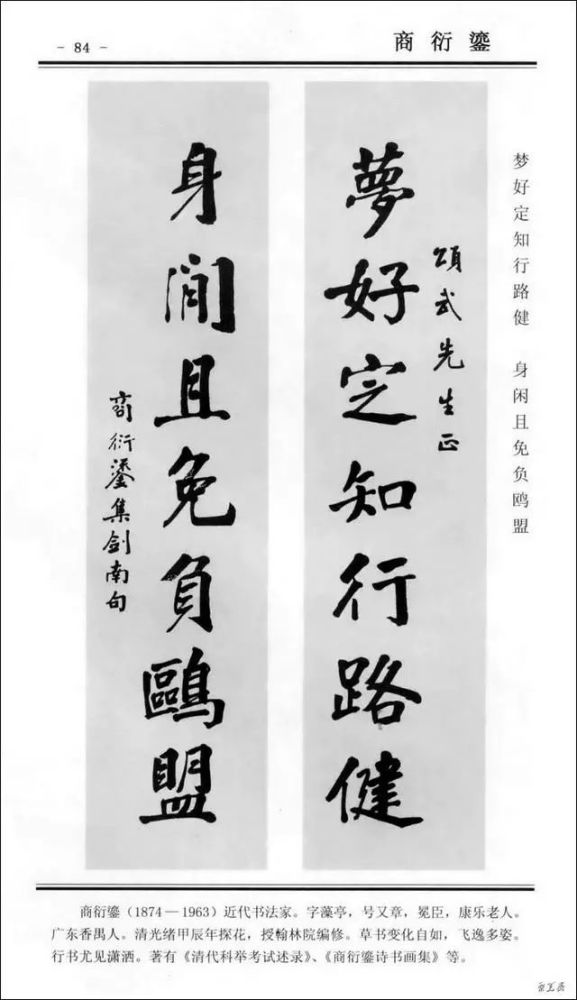 - 84 -
商衍鎏
梦好定知行路健 身闲且免负鸥盟
頌武先生正
夢好定知行路健
身閒且免負鷗盟
商衍鎏集剑南句
商衍鎏（1874—1963）近代书法家。字藻亭，号又章，冕臣，康乐老人。
广东香禺人。清光绪甲辰年探花，授翰林院编修。草书变化自如，飞逸多姿。
行书尤见潇洒。著有《清代科举考试述录》、《商衍鎏诗书画集》等。